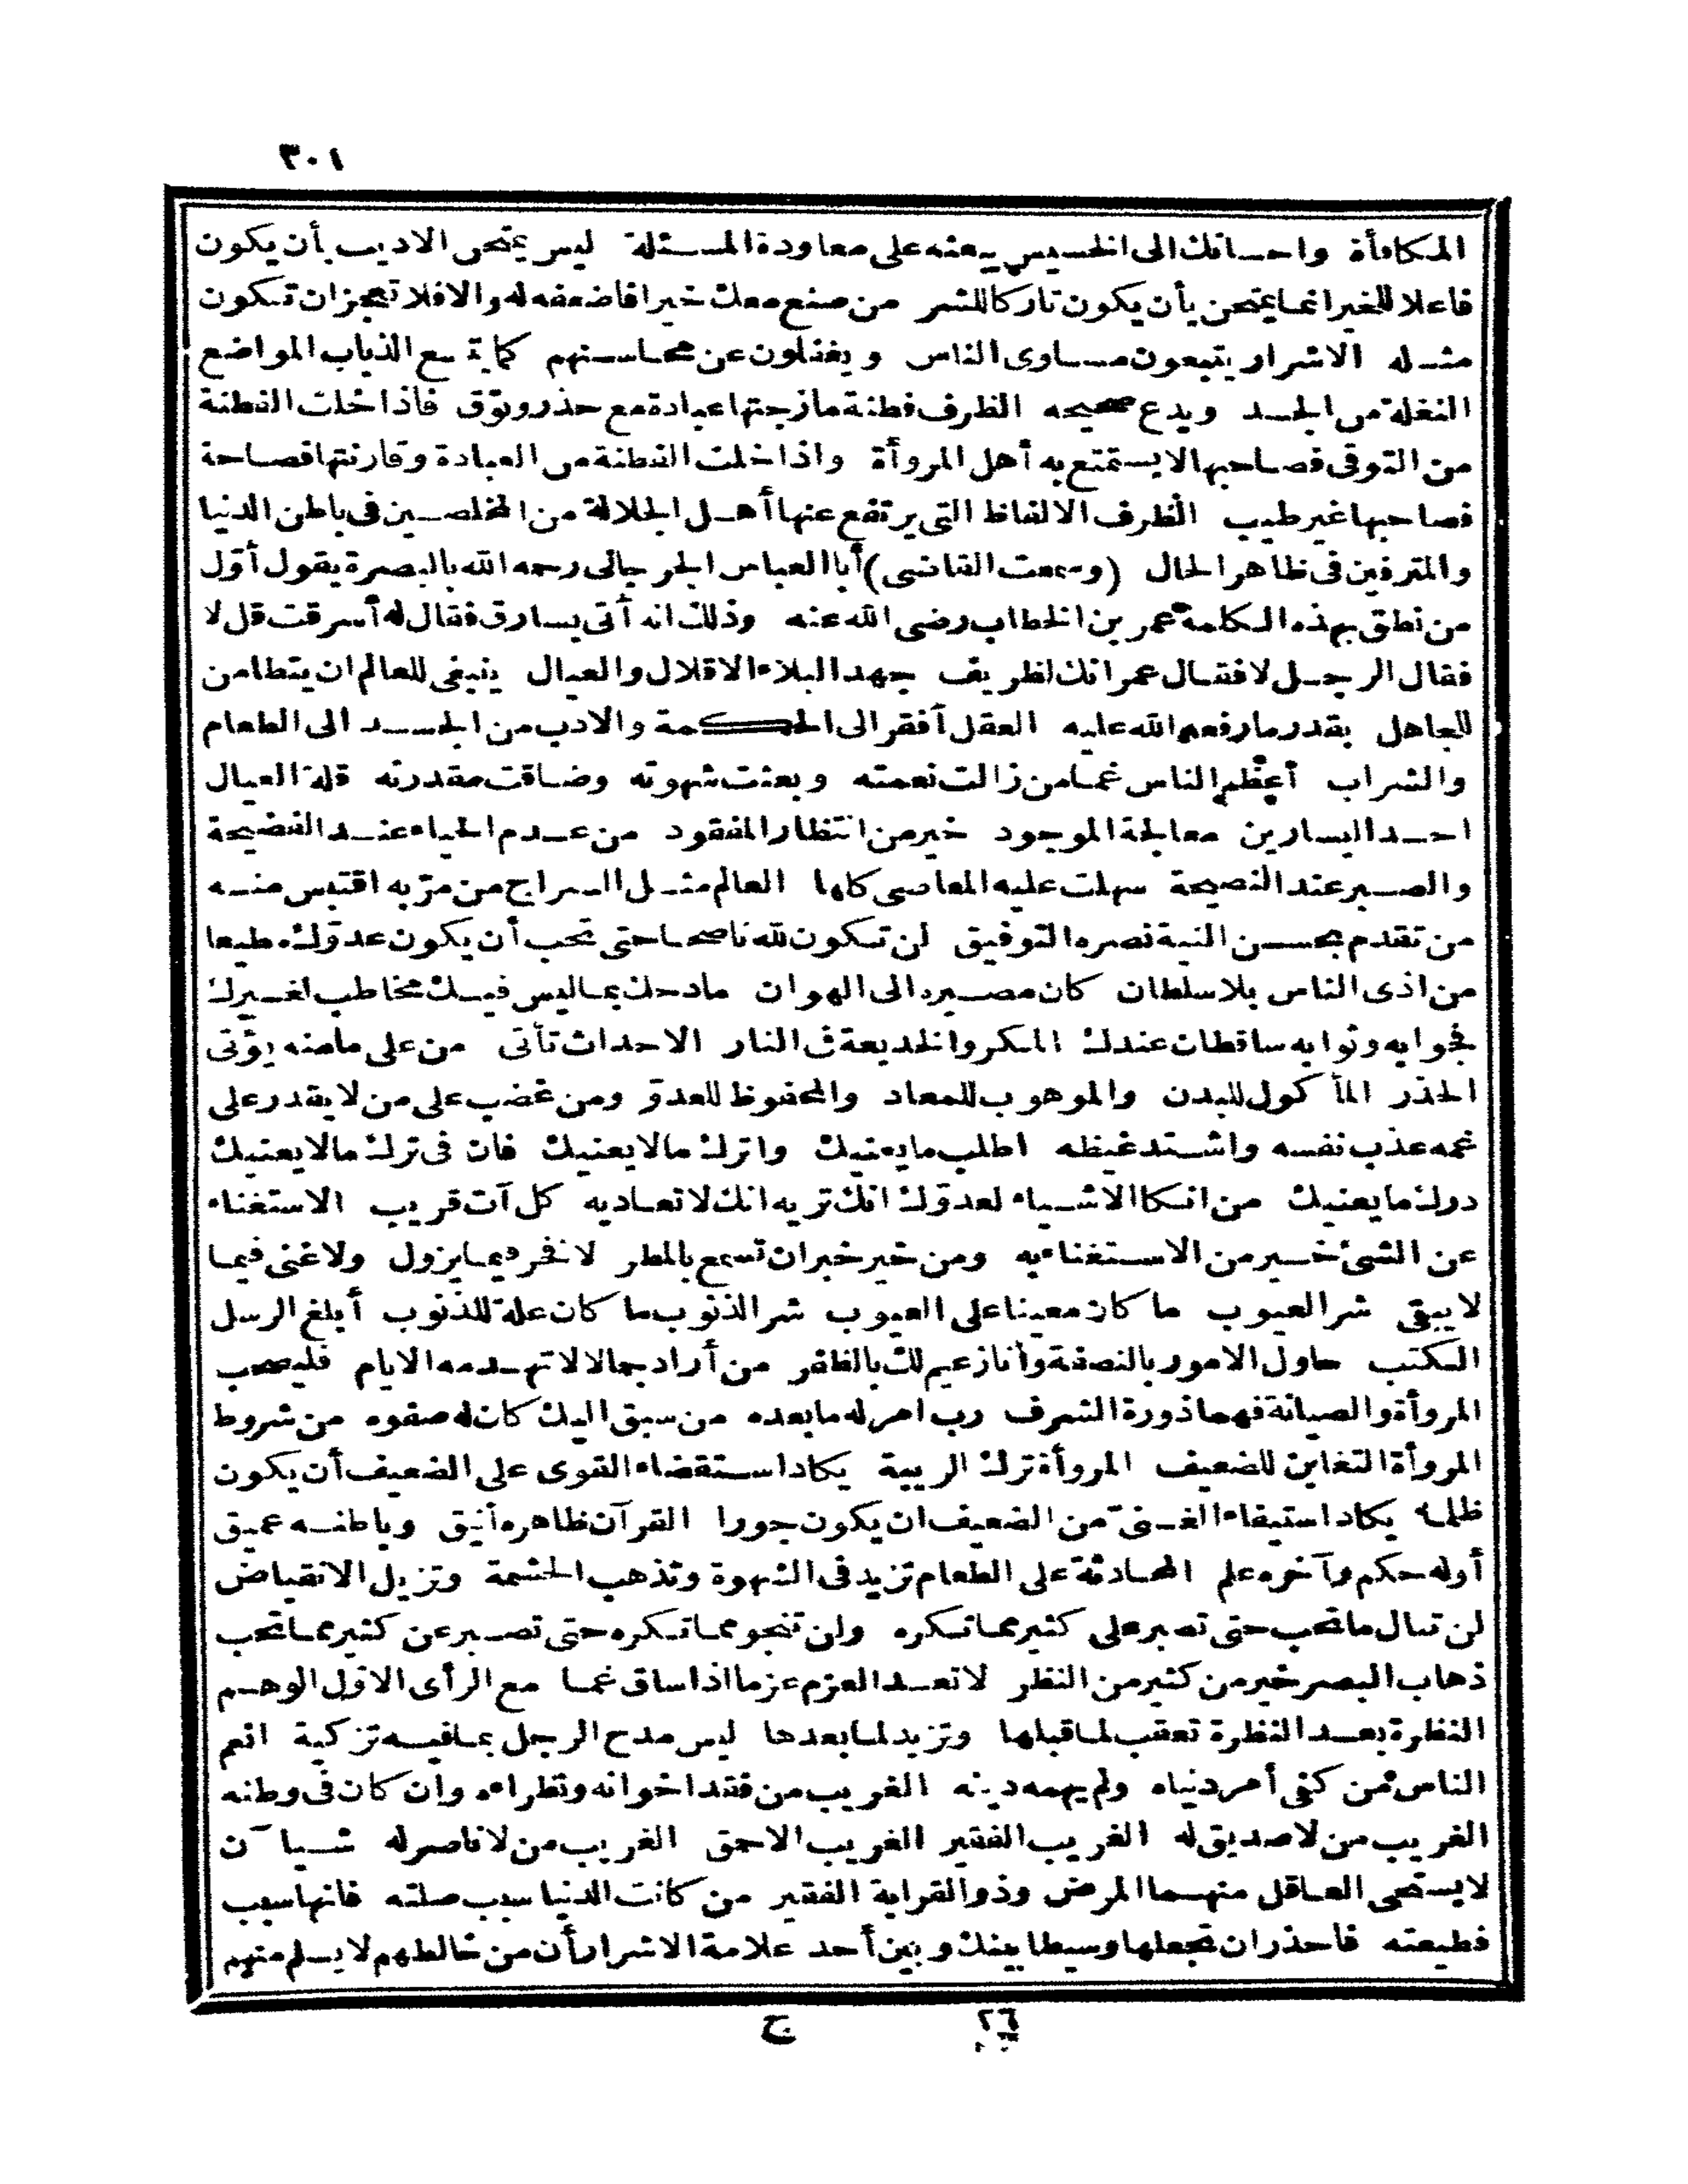 ٣٠١
المكافأة واحسانك الى الخسيس يبعثه على معاودة المسئلة ليس يمتحن الاديب بأن يكون
فاعلا للخير انما يمتحن بأن يكون تاركا للشر من صنع معك خيرا فاضعفه له والا فلا تعجز ان تكون
مثله الاشرار يتبعون مساوى الناس ويغفلون عن محاسنهم كما يتبع الذباب المواضع
النغلة من الجسد ويدع صحيحه الظرف فطنة مازجتها عبادة مع حذر وتوق فاذا خلت الفطنة
من التوقى فصاحبها لا يستمتع به أهل المروأة واذا خلت الفطنة من العبادة وقارنتها فصاحة
فصاحبها غير طيب الظرف الالفاظ التى يرتفع عنها أهل الجلالة من المخلصين فى باطن الدنيا
والمترفين فى ظاهر الحال (وسمعت القاضى) أبا العباس الجرجانى رحمه الله بالبصرة يقول أوّل
من نطق بهذه الكلمة عمر بن الخطاب رضى الله عنه وذلك انه أتى بسارق فقال له أسرقت قل لا
فقال الرجل لا فقال عمر انك لظريف جهد البلاء الاقلال والعيال ينبغى للعالم ان يتطامن
للجاهل بقدر ما رفعه الله عليه العقل أفقر الى الحكمة والادب من الجسد الى الطعام
والشراب أعظم الناس غما من زالت نعمته وبعثت شهوته وضاقت مقدرته قلة العيال
احد اليسارين معالجة الموجود خير من انتظار المفقود من عدم الحياء عند الفضيحة
والصبر عند النصيحة سهلت عليه المعاصى كلها العالم مثل السراج من مرّ به اقتبس منه
من تقدم بحسن النية نصره التوفيق لن تكون لله ناصحا حتى تحب أن يكون عدوّك مطيعا
من اذى الناس بلا سلطان كان مصيره الى الهوان مادحك بما ليس فيك مخاطب لغيرك
فجوابه وثوابه ساقطان عندك المكر والخديعة فى النار الاحداث تأتى من على مامنه يؤتى
الحذر المأكول للبدن والموهوب للمعاد والمحفوظ للعدوّ ومن غضب على من لا يقدر على
غمه عذب نفسه واشتد غيظه اطلب ما يعنيك واترك ما لا يعنيك فان فى ترك ما لا يعنيك
درك ما يعنيك من انكا الاشياء لعدوّك انك تريه انك لا تعاديه كل آت قريب الاستغناء
عن الشئ خير من الاستغناء به ومن خير خبر ان تسمع بالمطر لا فخر فيما يزول ولا غنى فيما
لا يبقى شر العيوب ما كان معينا على العيوب شر الذنوب ما كان علة للذنوب أبلغ الرسل
الكتب حاول الامور بالنصفة وأنا زعيم لك بالظفر من أراد جمالا لا تهدمه الايام فليصحب
المروأة والصيانة فهما ذورة الشرف رب امر له ما بعده من سبق اليك كان له صفوه من شروط
المروأة التغابن للضعيف المروأة ترك الريبة يكاد استقضاء القوى على الضعيف أن يكون
ظلما يكاد استيفاء الغنىّ من الضعيف ان يكون جورا القرآن ظاهره أنيق وباطنه عميق
أوله حكم وآخره علم المحادثة على الطعام تزيد فى الشهوة وتذهب الحشمة وتزيل الانقباض
لن تنال ما تحب حتى تصبر على كثير مما تكره ولن تنجو مما تكره حتى تصبر عن كثير مما تحب
ذهاب البصر خير من كثير من النظر لا تعد العزم عزما اذا ساق غما مع الرأى الاوّل الوهم
النظرة بعد النظرة تعقب لما قبلها وتزيد لما بعدها ليس مدح الرجل بما فيه تزكية انعم
الناس من كفى أمر دنياه ولم يهمه دينه الغريب من فقد اخوانه ونظراءه وان كان فى وطنه
الغريب من لا صديق له الغريب الفقير الغريب الاحمق الغريب من لا ناصر له شيآن
لا يستحى العاقل منهما المرض وذو القرابة الفقير من كانت الدنيا سبب صلته فانها سبب
قطيعته فاحذر ان تجعلها وسيطا بينك وبين أحد علامة الاشرار أن من خالطهم لا يسلم منهم
٢٦ ج